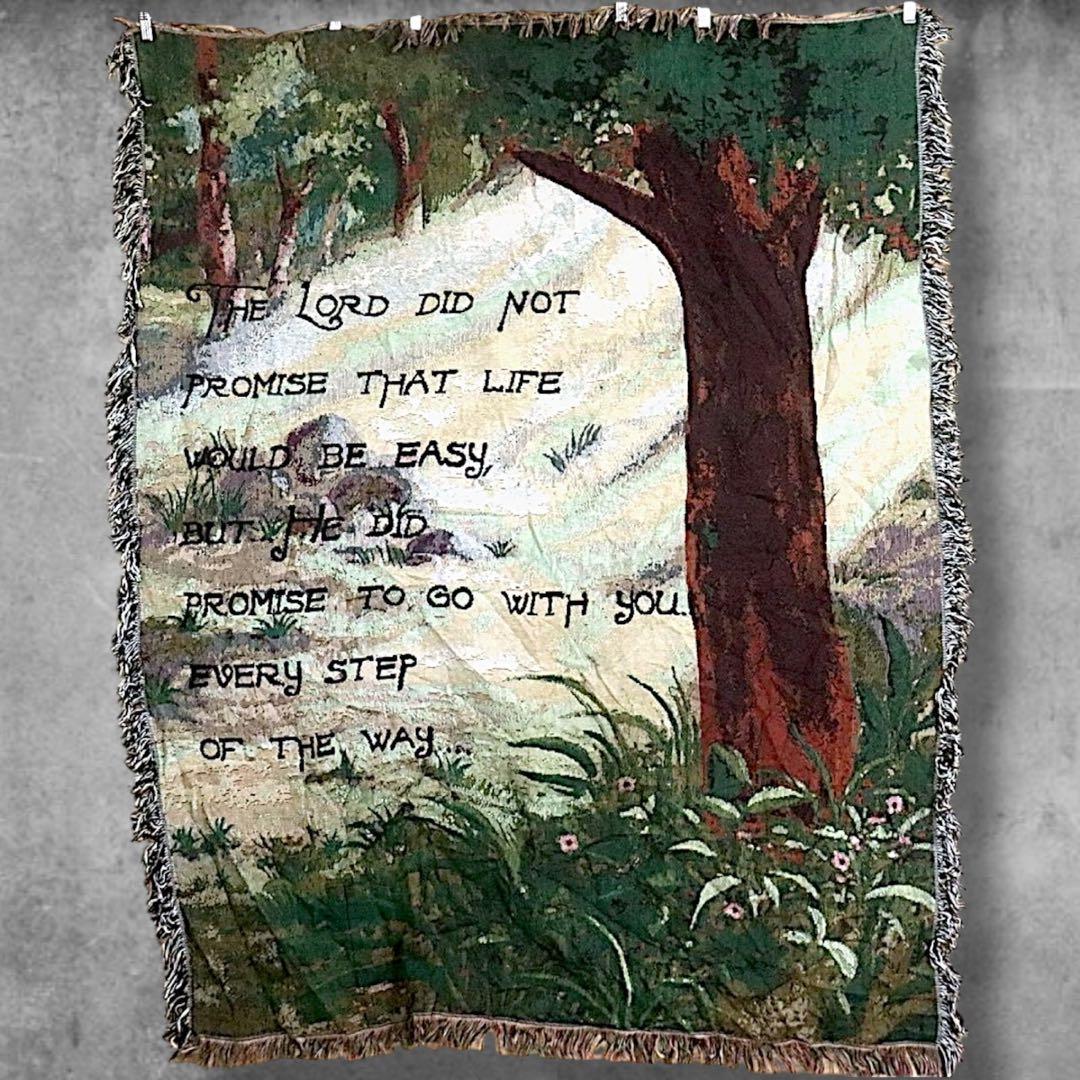 The Lord did not
promise that life
would be easy,
but He did
promise to go with you.
every step
of the way...